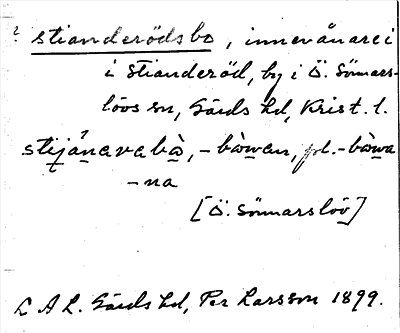 ? stianderödsbo, innevånare i
i Stianderöd, by i Ö. Sönnars-
löos sn, Gärds hd, Krist. l.
stjánarabò, -bòwan, pl. -bòwa
-na
[Ö. Sönnarslöv]
L A L. Gärds hd, Per Larsson 1899.